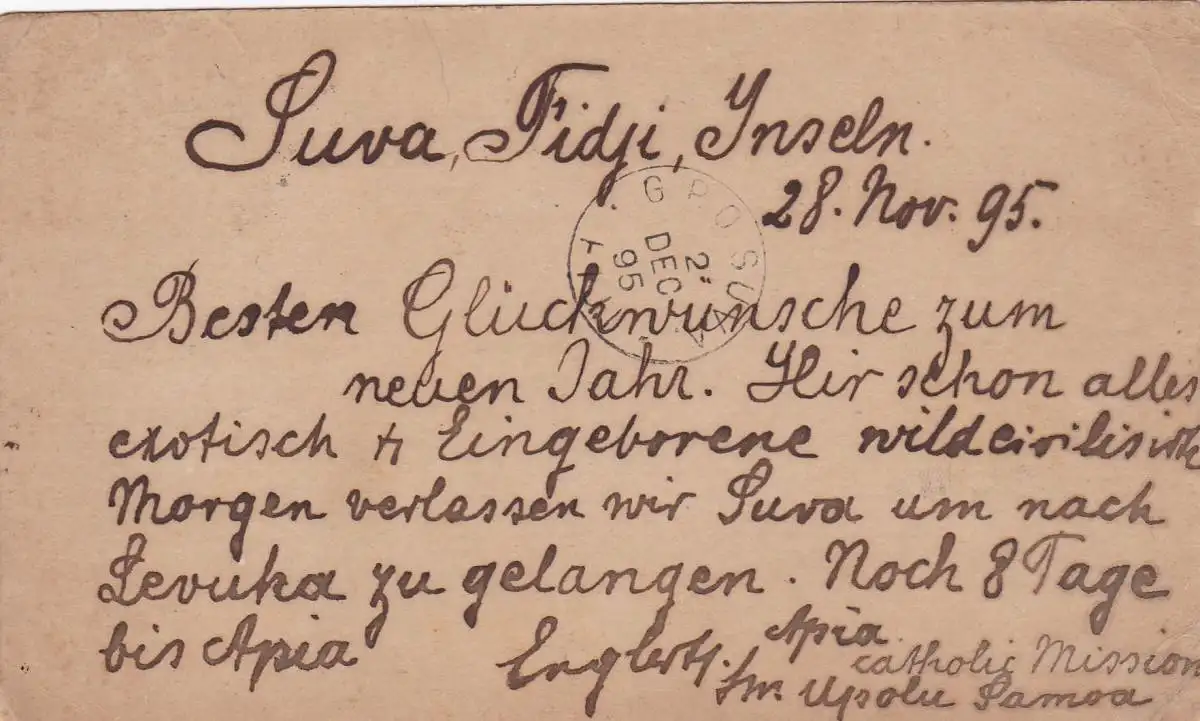 Suva, Fidji, Inseln.
28. Nov. 95.
G P O SUVA
2
DEC
95
Besten Glückwunsche zum
neuen Jahr. Hir schon alles
exotisch & Eingeborene wildcivilisirte
Morgen verlassen wir Suva um nach
Levuka zu gelangen. Noch 8 Tage
bis Apia
Englert
Apia
catholic Mission
Upolu Samoa